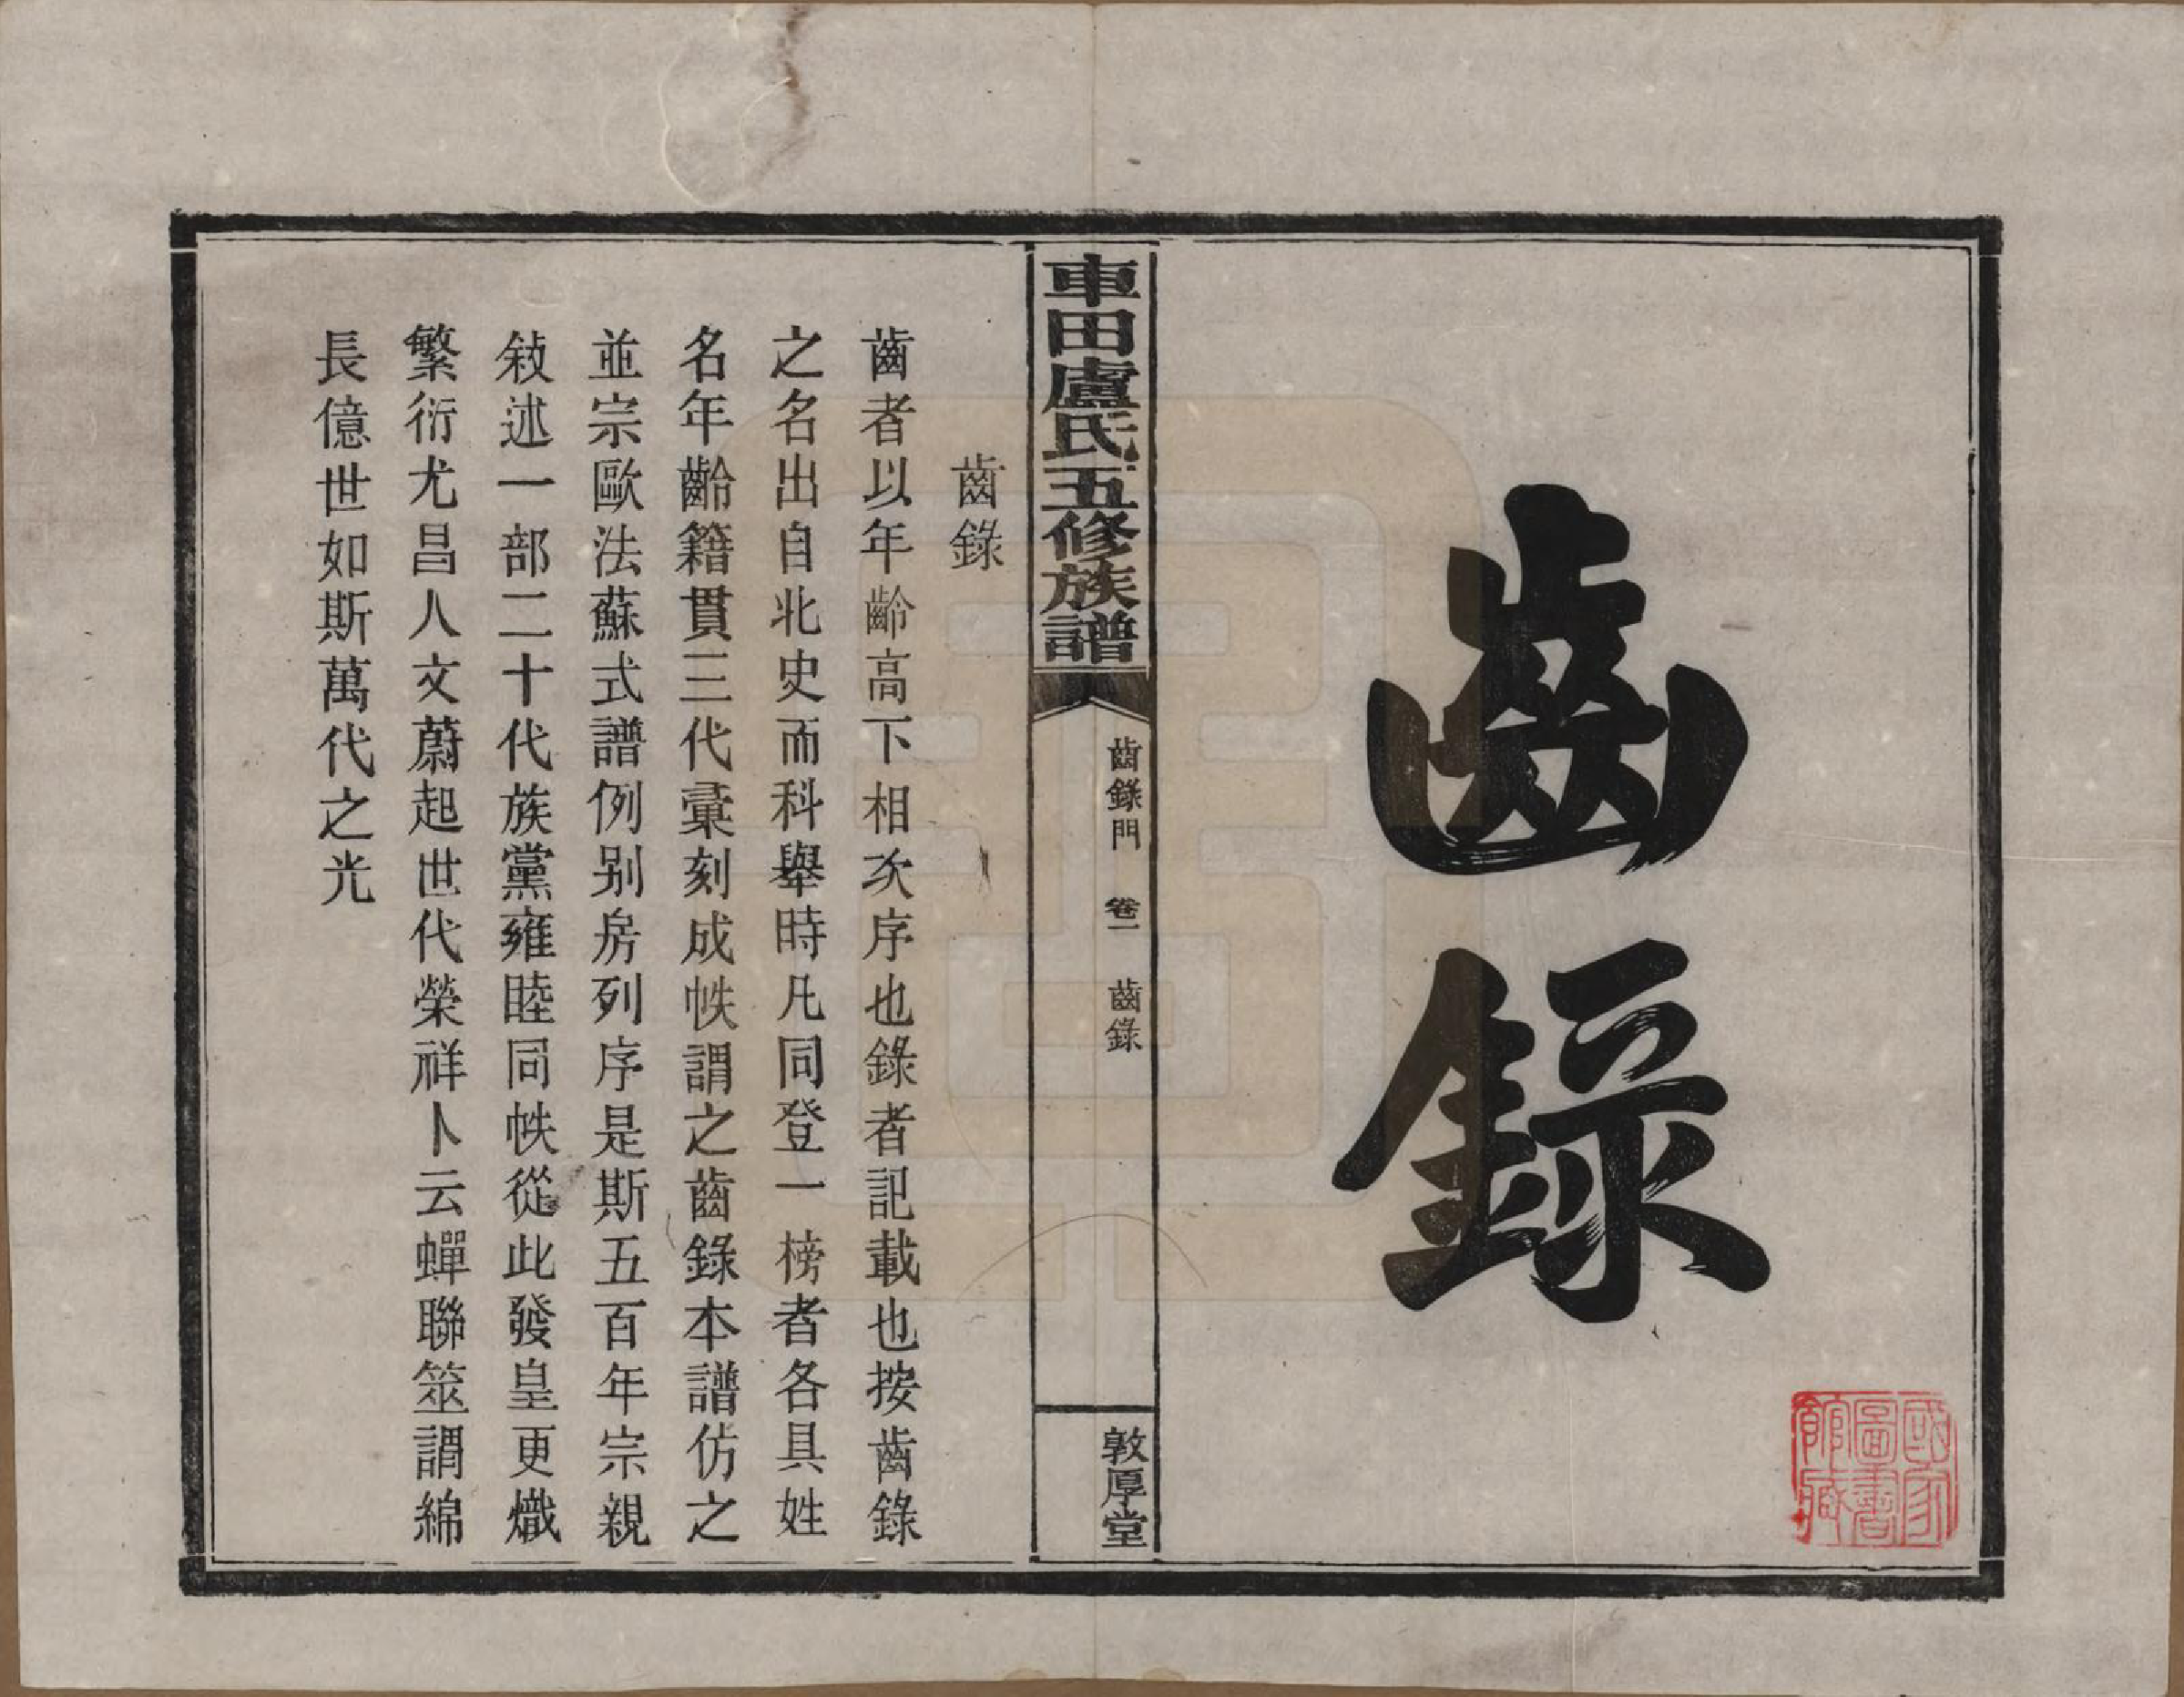 齒錄
國家圖書館藏
車田盧氏五修族譜
齒錄門 卷一 齒錄
敦厚堂
齒錄
齒者以年齡高下相次序也錄者記載也按齒錄
之名出自北史而科舉時凡同登一榜者各具姓
名年齡籍貫三代彙刻成帙謂之齒錄本譜仿之
並宗歐法蘇式譜例別房列序是斯五百年宗親
敍述一部二十代族黨雍睦同帙從此發皇更熾
繁衍尤昌人文蔚起世代榮祥卜云蟬聯筮謂綿
長億世如斯萬代之光